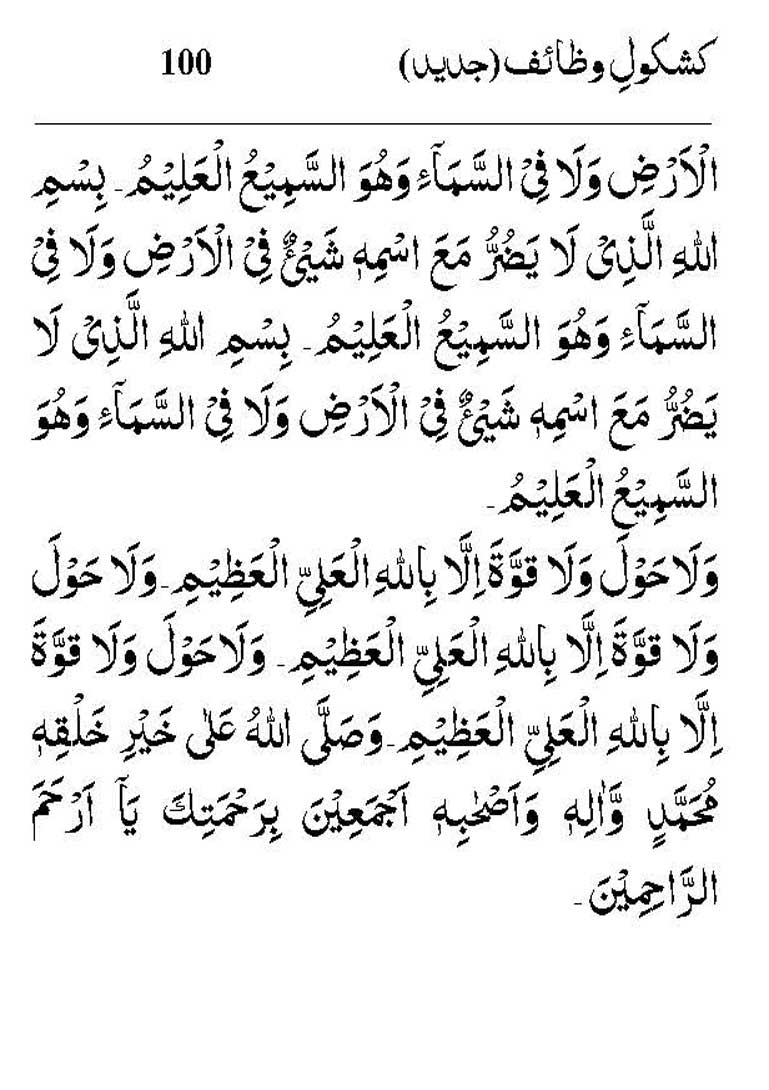 کشکولِ وظائف (جدید) 100
الْاَرْضِ وَلَا فِیْ السَّمَآءِ وَهُوَ السَّمِیْعُ الْعَلِیْمُ۔ بِسْمِ
اللهِ الَّذِیْ لَا یَضُرُّ مَعَ اسْمِهٖ شَیْئٌ فِیْ الْاَرْضِ وَلَا فِیْ
السَّمَآءِ وَهُوَ السَّمِیْعُ الْعَلِیْمُ۔ بِسْمِ اللهِ الَّذِیْ لَا
یَضُرُّ مَعَ اسْمِهٖ شَیْئٌ فِیْ الْاَرْضِ وَلَا فِیْ السَّمَآءِ وَهُوَ
السَّمِیْعُ الْعَلِیْمُ۔
وَلَا حَوْلَ وَلَا قوَّةَ اِلَّا بِاللهِ الْعَلِیِّ الْعَظِیْمِ۔ وَلَا حَوْلَ
وَلَا قوَّةَ اِلَّا بِاللهِ الْعَلِیِّ الْعَظِیْمِ۔ وَلَا حَوْلَ وَلَا قوَّةَ
اِلَّا بِاللهِ الْعَلِیِّ الْعَظِیْمِ۔ وَصَلَّی اللهُ عَلٰی خَیْرِ خَلْقِهٖ
مُحَمَّدٍ وَّاٰلِهٖ وَاَصْحٰبِهٖ اَجْمَعِیْنَ بِرَحْمَتِكَ یَآ اَرْحَمَ
الرَّاحِمِیْنَ۔